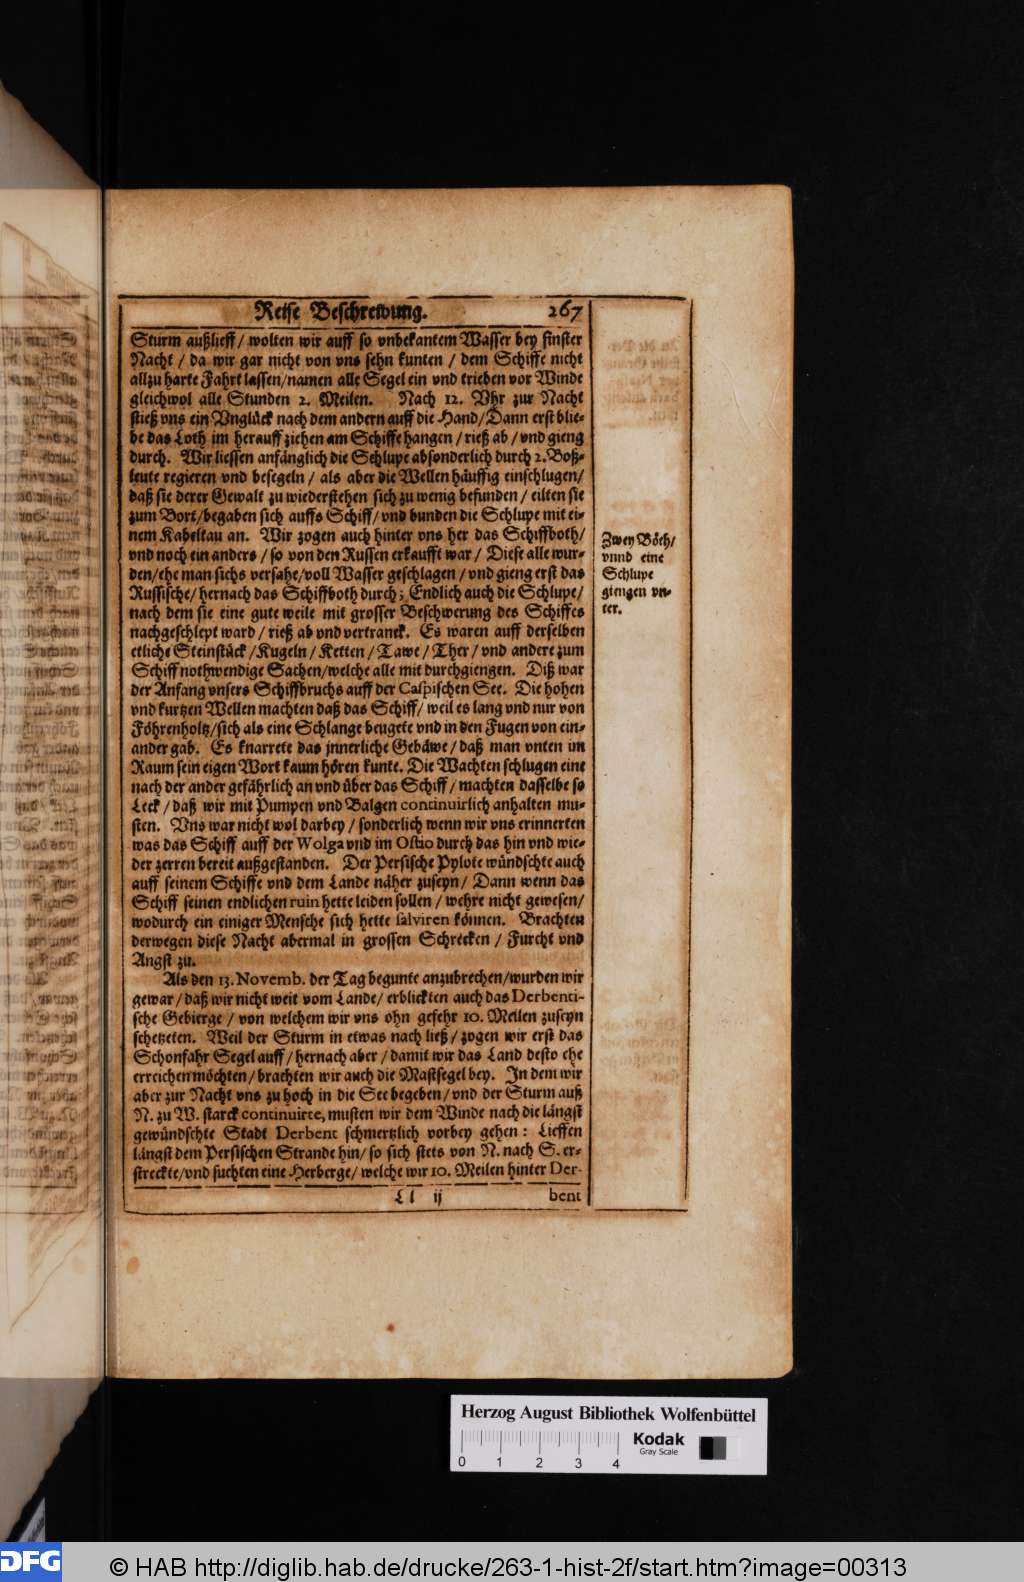 Reise Beschreibung. 267
Sturm außlieff / wolten wir auff so vnbekantem Wasser bey finster
Nacht / da wir gar nicht von vns sehn kunten / dem Schiffe nicht
allzu harte Fahrt lassen/namen alle Segel ein vnd trieben vor Winde
gleichwol alle Stunden 2. Meilen. Nach 12. Vhr zur Nacht
stieß vns ein Vnglück nach dem andern auff die Hand/Dann erst blie-
be das Loth im herauff ziehen am Schiffe hangen / rieß ab / vnd gieng
durch. Wir liessen anfänglich die Schlupe absonderlich durch 2. Boß-
leute regieren vnd besegeln / als aber die Wellen häuffig einschlugen/
daß sie derer Gewalt zu wiederstehen sich zu wenig befunden / eilten sie
zum Bort/begaben sich auffs Schiff/ vnd bunden die Schlupe mit ei-
nem Kabeltau an. Wir zogen auch hinter vns her das Schiffboth/
vnd noch ein anders / so von den Russen erkaufft war / Diese alle wur-
den/ehe man sichs versahe/voll Wasser geschlagen / vnd gieng erst das
Russische/ hernach das Schiffboth durch; Endlich auch die Schlupe/
nach dem sie eine gute weile mit grosser Beschwerung des Schiffes
nachgeschlept ward / rieß ab vnd vertranck. Es waren auff derselben
etliche Steinstück /Kugeln / Ketten / Tawe / Ther / vnd andere zum
Schiff nothwendige Sachen/welche alle mit durchgiengen. Diß war
der Anfang vnsers Schiffbruchs auff der Caspischen See. Die hohen
vnd kurtzen Wellen machten daß das Schiff/ weil es lang vnd nur von
Föhrenholtz/sich als eine Schlange beugete vnd in den Fugen von ein-
ander gab. Es knarrete das jnnerliche Gebäwe / daß man vnten im
Raum sein eigen Wort kaum hören kunte. Die Wachten schlugen eine
nach der ander gefährlich an vnd über das Schiff / machten dasselbe so
Leck / daß wir mit Pumpen vnd Balgen continuirlich anhalten mu-
sten. Vns war nicht wol darbey / sonderlich wenn wir vns erinnerten
was das Schiff auff der Wolga vnd im Ostio durch das hin vnd wie-
der zerren bereit außgestanden. Der Persische Pylote wündschte auch
auff seinem Schiffe vnd dem Lande näher zuseyn / Dann wenn das
Schiff seinen endlichen ruin hette leiden sollen / wehre nicht gewesen/
wodurch ein einiger Mensche sich hette salviren können. Brachten
derwegen diese Nacht abermal in grossen Schrecken / Furcht vnd
Angst zu.
Als den 13. Novemb. der Tag begunte anzubrechen/wurden wir
gewar / daß wir nicht weit vom Lande/ erblickten auch das Derbenti-
sche Gebierge / von welchem wir vns ohn gefehr 10. Meilen zuseyn
schetzeten. Weil der Sturm in etwas nach ließ / zogen wir erst das
Schonfahr Segel auff / hernach aber / damit wir das Land desto ehe
erreichen möchten / brachten wir auch die Mastsegel bey. In dem wir
aber zur Nacht vns zu hoch in die See begeben / vnd der Sturm auß
N. zu W. starck continuirte, musten wir dem Winde nach die längst
gewündschte Stadt Derbent schmertzlich vorbey gehen : Lieffen
längst dem Persischen Strande hin/ so sich stets von N. nach S. er-
streckte/vnd suchten eine Herberge/ welche wir 10. Meilen hinter Der-
Ll ij bent
Zwey Böth/
vnnd eine
Schlupe
giengen vn-
ter.
Herzog August Bibliothek Wolfenbüttel
Kodak
Gray Scale
0 1 2 3 4
DFG
© HAB http://diglib.hab.de/drucke/263-1-hist-2f/start.htm?image=00313